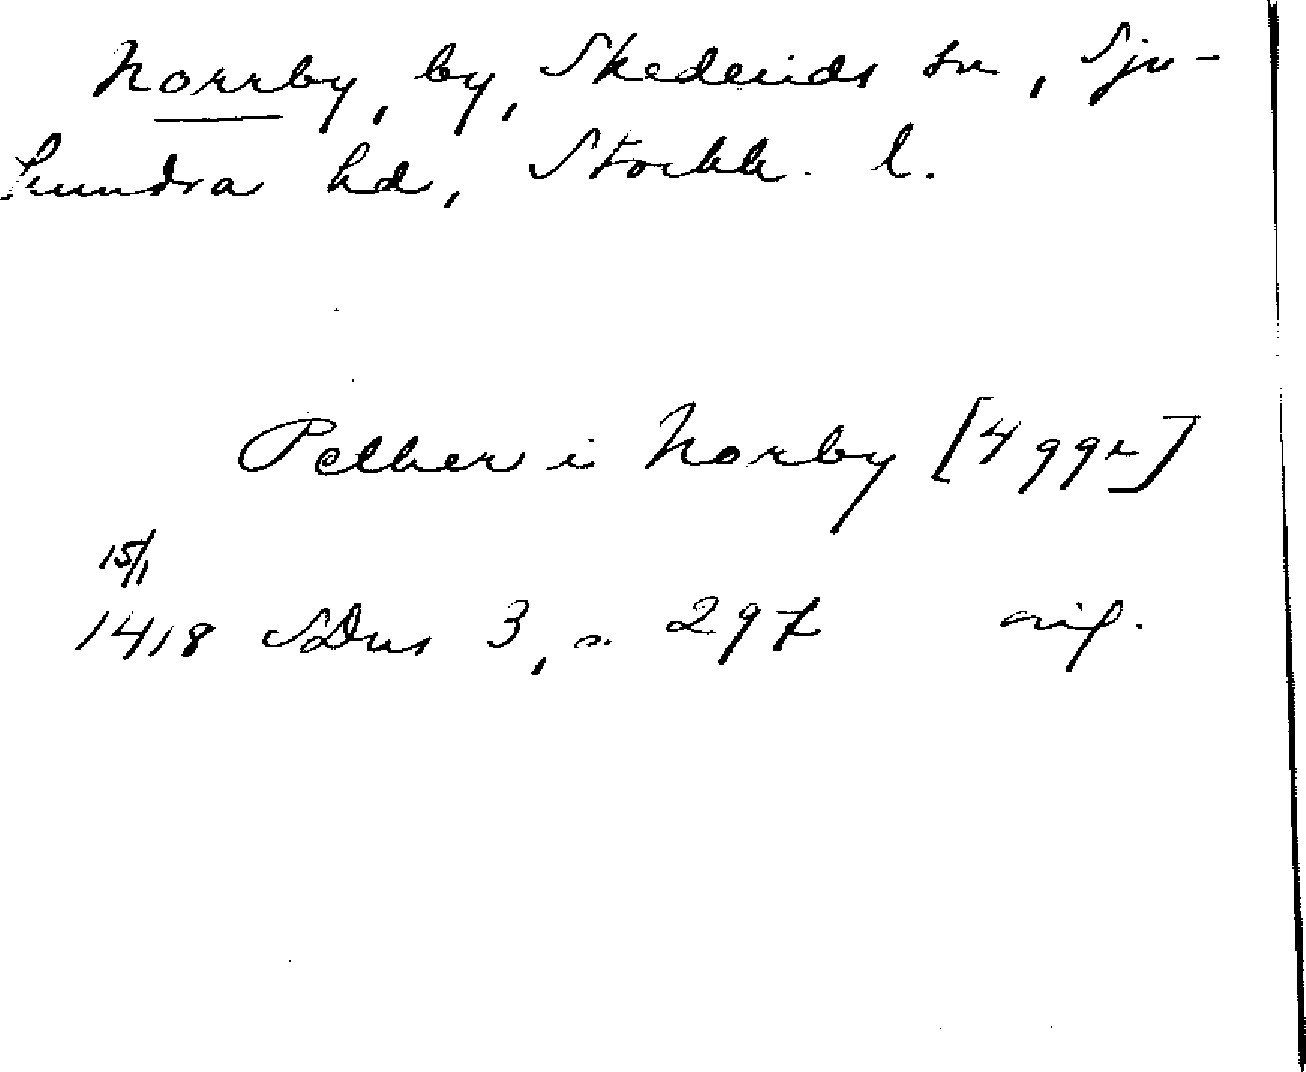 Norrby, by, Skederids sn, Sju-
hundra hd, Stockh. l.
Pether i Norby [4 ggr]
15/1
1418 SDns 3, s. 297 orig.